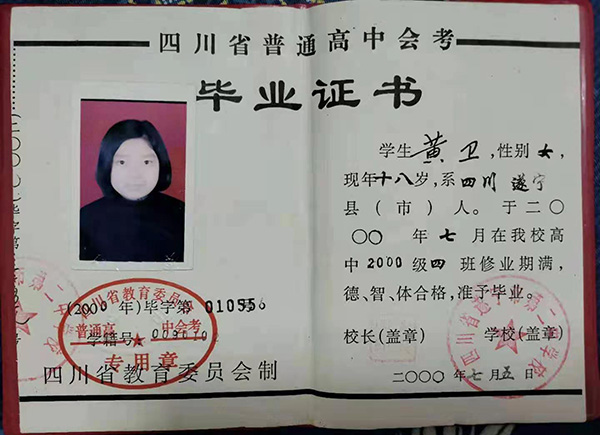 四川省普通高中会考
毕业证书
学生黄卫,性别女,
现年十八岁,系四川遂宁
县(市)人。于二〇
〇〇年七月在我校高
中2000级四班修业期满,
德、智、体合格,准予毕业。
校长(盖章) 学校(盖章)
二〇〇〇年七月五日
(2000年)毕字第
学籍号
四川省教育委员会
普通高中会考
专用章
四川省教育委员会制